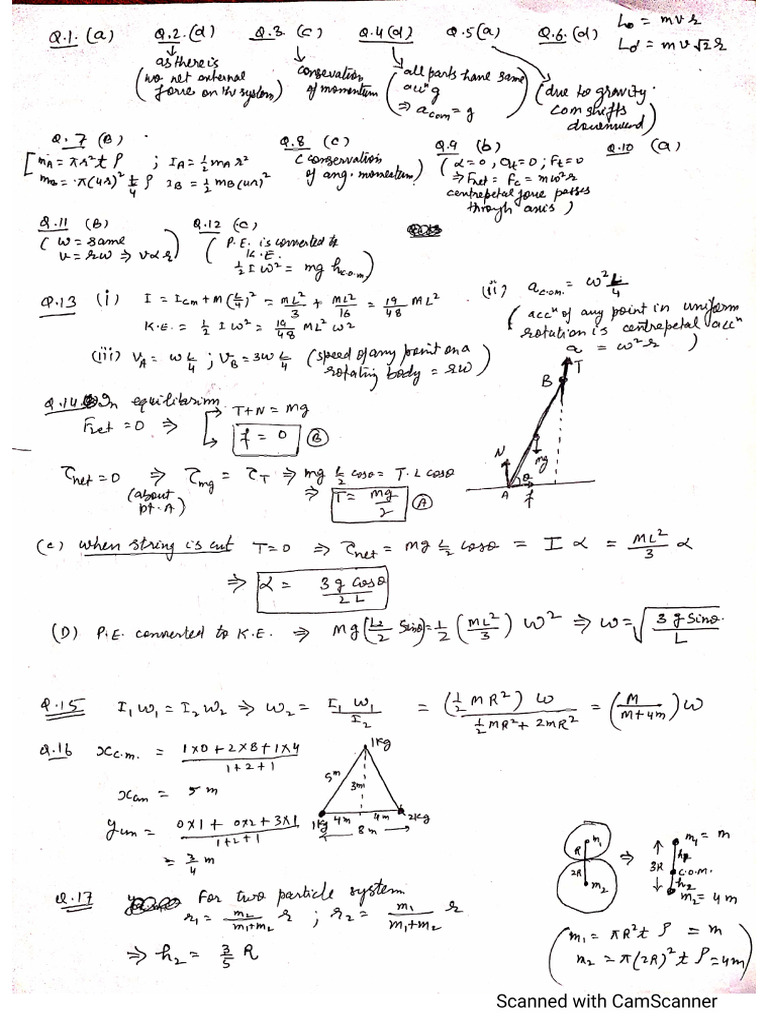 Q.1. (a) Q.2. (d) Q.3. (c) Q.4 (d) Q.5 (a) Q.6. (d) L₀ = mvr
L₀' = mv√2r
as there is no net external force on the system
conservation of momentum
all parts have same accⁿ g ⇒ a_com = g
due to gravity com shifts downward
Q.7 (B) Q.8 (c) Q.9 (b) Q.10 (a)
[m_A = πr²t ρ ; I_A = ½ m_A r²
m_B = π(4r)² t/4 ρ I_B = ½ m_B (4r)²
(conservation of ang. momentum)
(α = 0, a_t = 0 ; F_t = 0
⇒ F_net = F_c = mω²r
centrepetal force passes through axis)
Q.11 (B) Q.12 (c)
(ω = same
v = rω ⇒ v α r)
(P.E. is converted to K.E.
½ I ω² = mg h_c.o.m.)
Q.13 (i) I = I_cm + M(L/4)² = mL²/3 + mL²/16 = 19/48 ML²
K.E. = ½ I ω² = 19/48 ML² ω²
(ii) a_c.o.m. = ω² L/4
(accⁿ of any point in uniform rotation is centrepetal accⁿ
a = ω² r)
(iii) V_A = ω L/4 ; V_B = 3ω L/4 (speed of any point on a rotating body = rω)
Q.14. In equilibrium
F_net = 0 ⇒ T+N = mg
f = 0 (B)
B T N mg θ A f
τ_net = 0 ⇒ τ_mg = τ_T ⇒ mg L/2 cosθ = T. L cosθ
(about pt. A) ⇒ T = mg/2 (A)
(c) when string is cut T=0 ⇒ τ_net = mg L/2 cosθ = I α = ML²/3 α
⇒ α = 3g cosθ/2L
(D) P.E. converted to K.E. ⇒ Mg(L/2 sinθ) = ½ (ML²/3) ω² ⇒ ω = √(3g sinθ/L)
Q.15 I₁ω₁ = I₂ω₂ ⇒ ω₂ = I₁ω₁/I₂ = (½MR²)ω/(½MR² + 2mR²) = (M/(M+4m))ω
Q.16 x_c.m. = (1×0+2×8+1×4)/(1+2+1)
x_cm = 5 m
y_cm = (0×1 + 0×2 + 3×1)/(1+2+1)
= 3/4 m
1kg 5m 3m 1kg 4m 4m 2kg 8m
Q.17 For two particle system
r₁ = m₂/(m₁+m₂) r ; r₂ = m₁/(m₁+m₂) r
⇒ h₂ = 3/5 R
R m₁ 2R m₂ ⇒ 3R m₁ = m
c.o.m.
h₂ m₂ = 4m
(m₁ = πR²t ρ = m
m₂ = π(2R)² t ρ = 4m)
Scanned with CamScanner